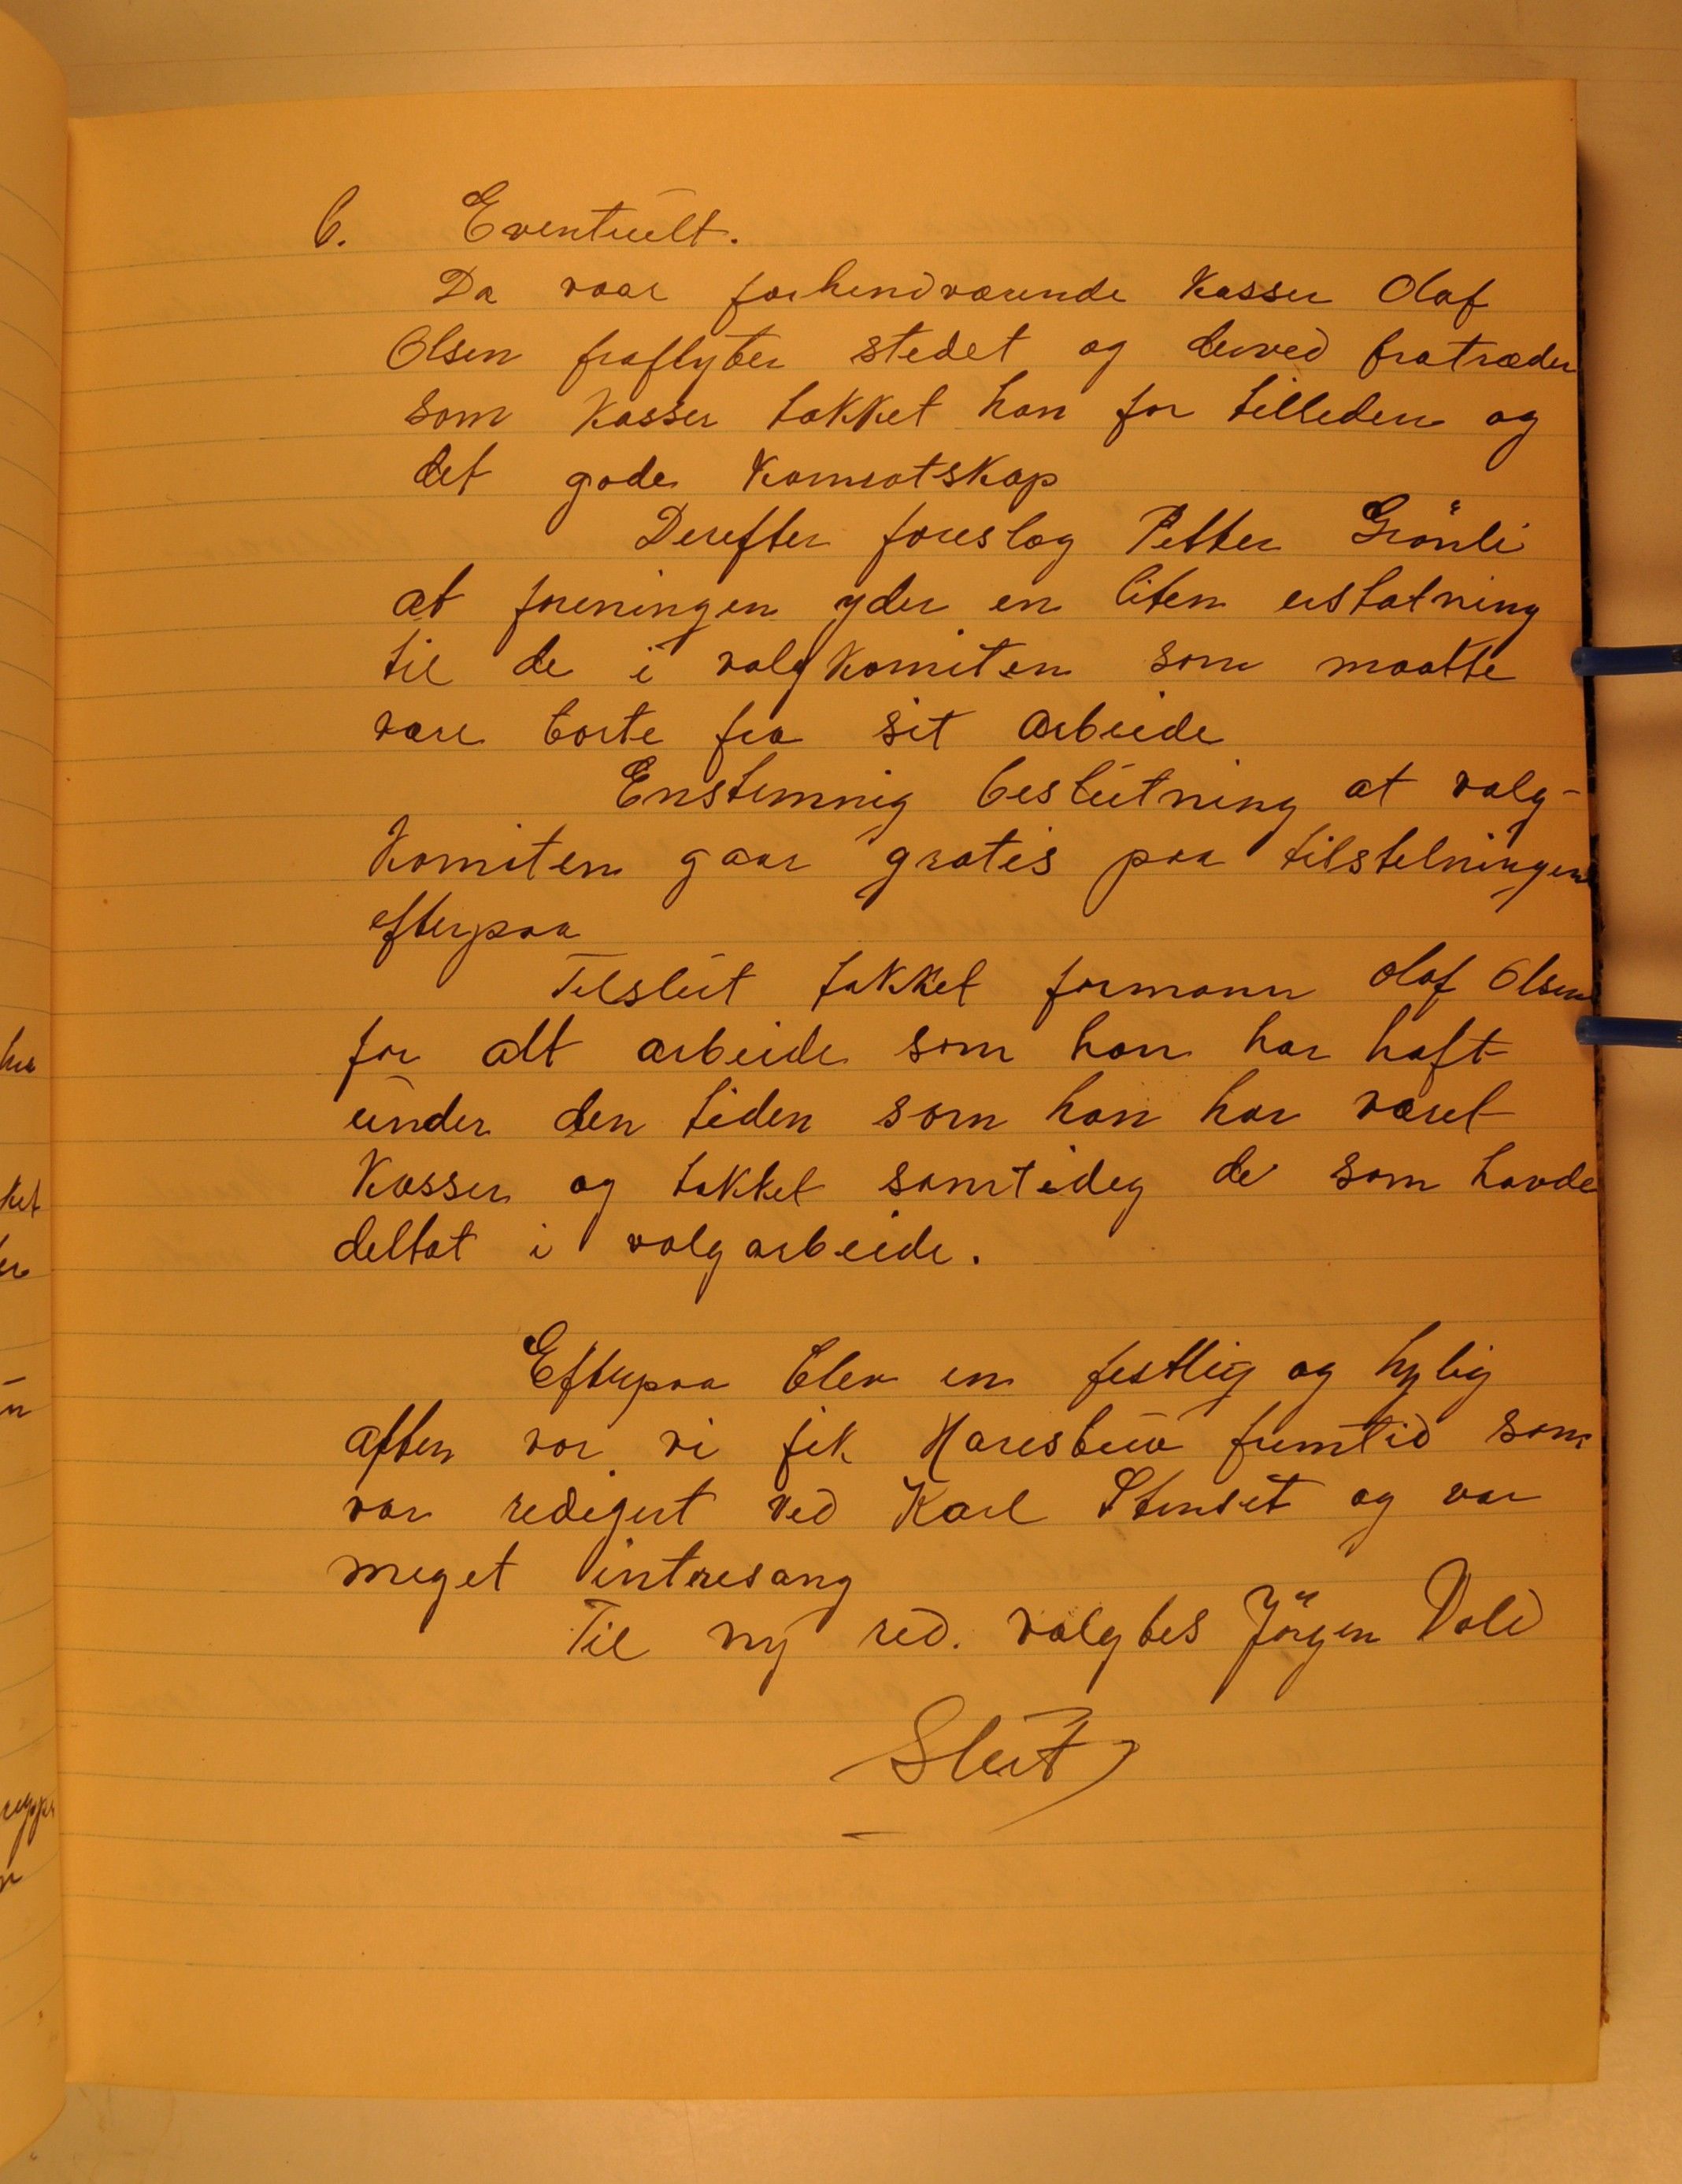 6. Eventuelt.
Da vaar forhendværende Kasser Olaf
Olsen fraflyter stedet og derved fratræder
som Kasser takket han for tilleden og
det gode Kamratskap
Derefter foreslog Petter Grönli
at foreningen yder en liten erstatning
til de i valgkomiten som maatte
være borte fra sit arbeide
Enstemmig beslutning at valg-
Komiten gaar gratis paa tilstelningen
efterpaa
Tilslut takket formann Olaf Olsen
for alt arbeide som han har haft
under den tiden som han har været
Kasser og takket samtideg de som havde
deltat i valgarbeide.
Efterpaa blev en festlig og hylig
aften vor vi fik fremtid som
var redigert ved Karl Stenset og var
meget intresang
Til ny red. valgtes Jörgen Vold
Slut